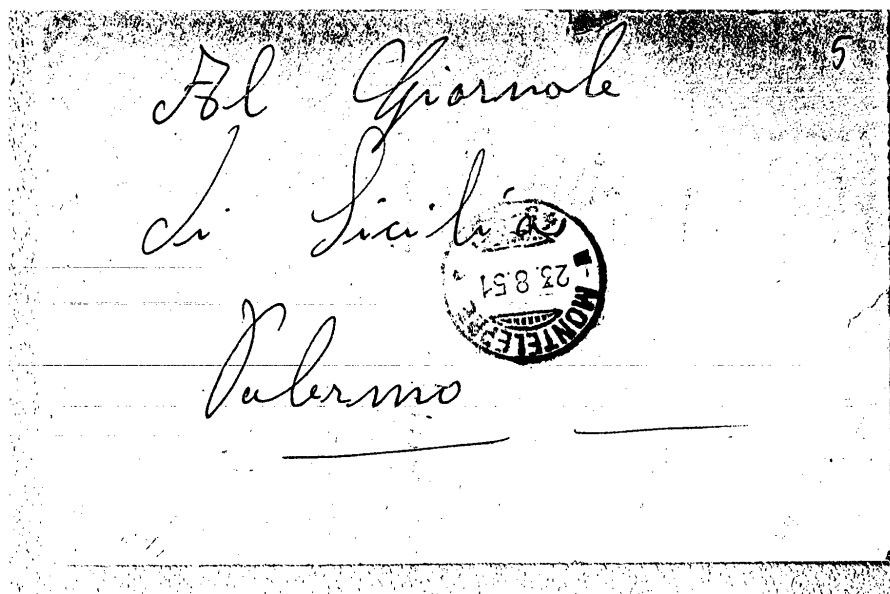 5
Al Giornale
di Sicilia
Palermo
MONTELEPRE
23.8.51